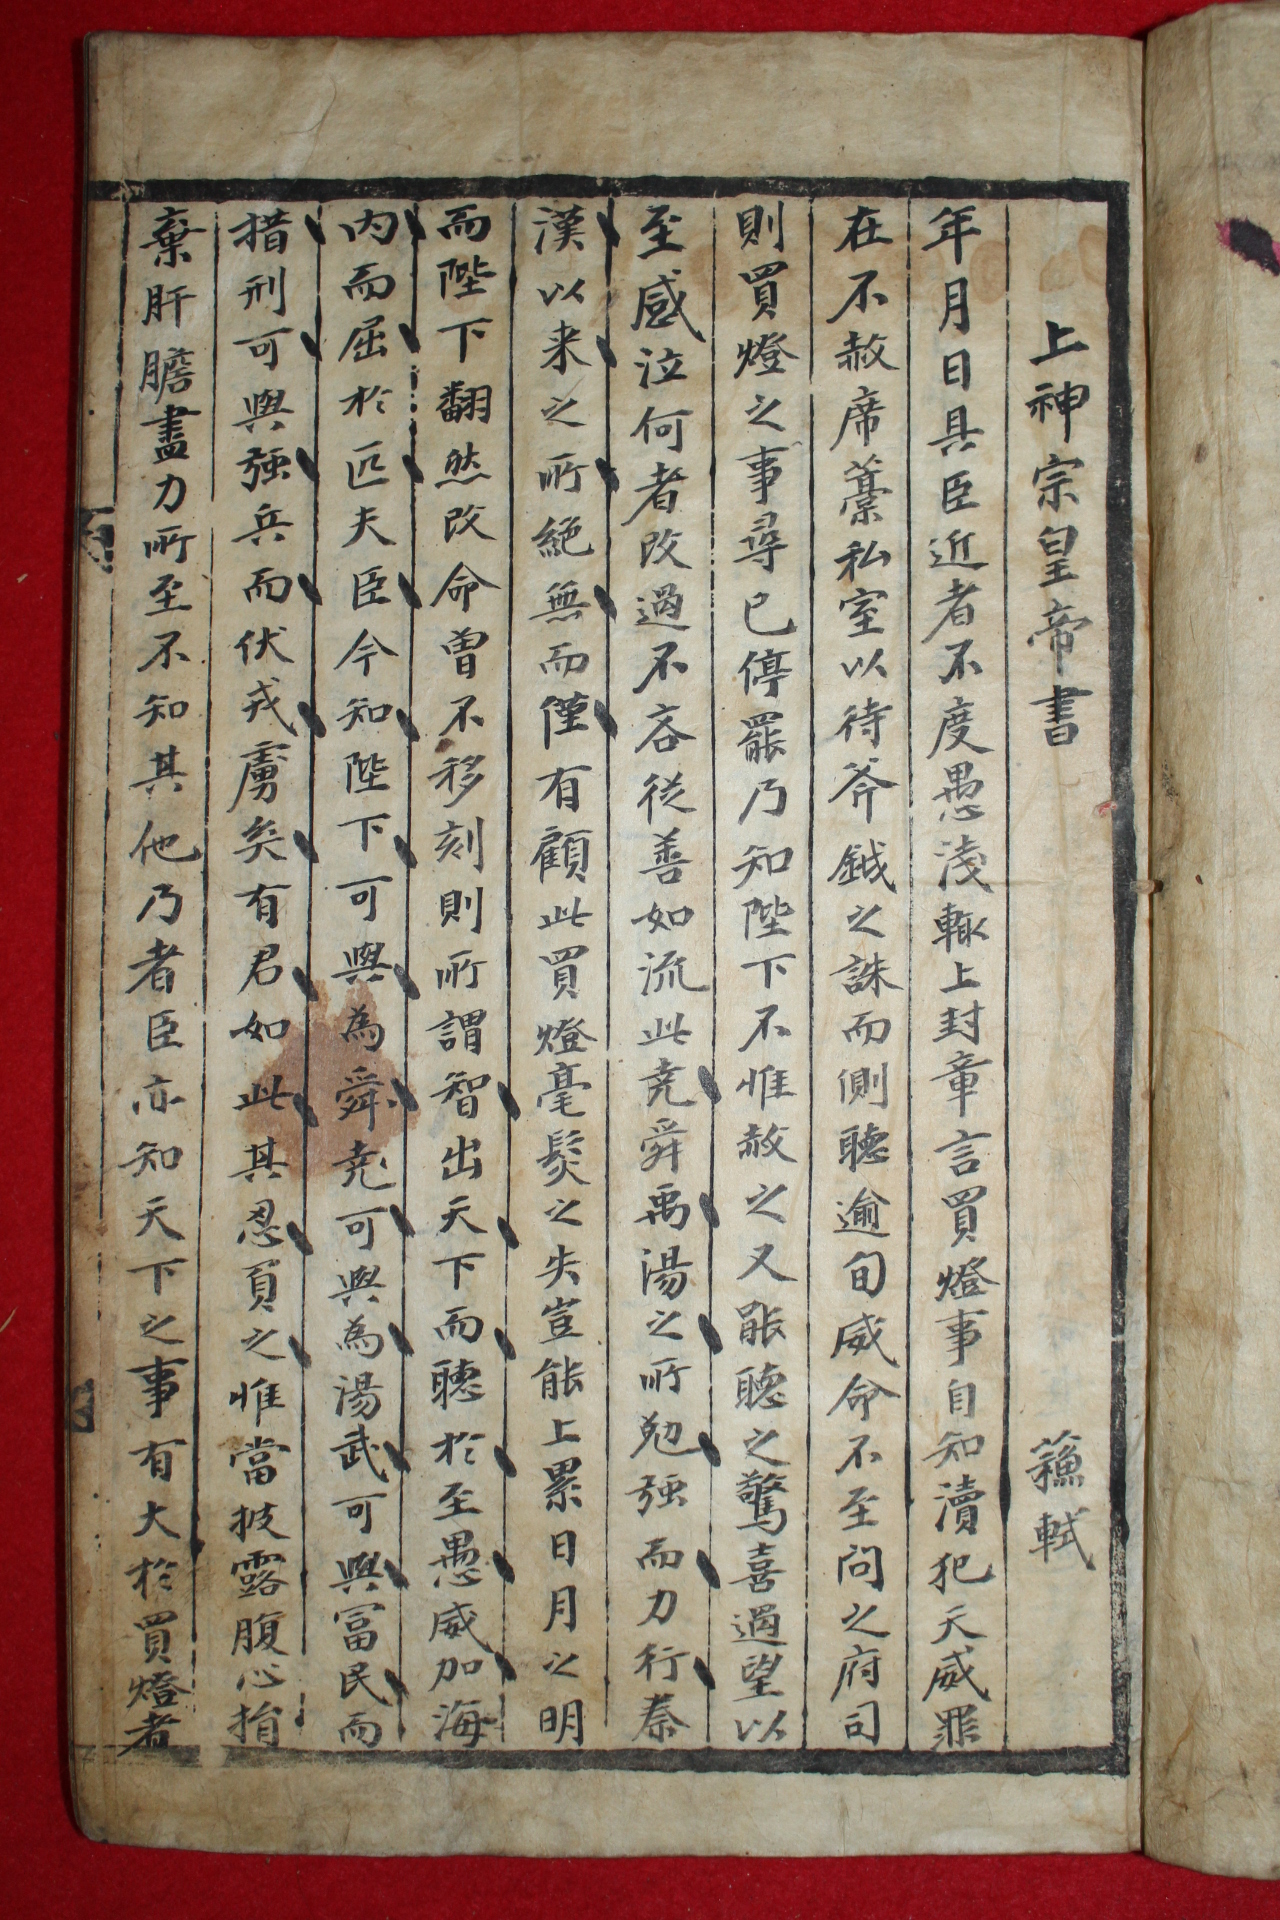 上神宗皇帝書 蘓軾
年月日具臣近者不度愚淺輙上封章言買燈事自知瀆犯天威罪
在不赦席藁私室以待斧鉞之誅而側聽逾旬威命不至問之府司
則買燈之事尋已停罷乃知陛下不惟赦之又能聽之驚喜過望以
至感泣何者改過不吝從善如流此堯舜禹湯之所勉强而力行秦
漢以来之所絶無而僅有顧此買燈毫髮之失豈能上累日月之明
而陛下翻然改命曽不移刻則所謂智出天下而聽於至愚威加海
内而屈於匹夫臣今知陛下可與為舜堯可與為湯武可與冨民而
措刑可與强兵而伏戎虜矣有君如此其忍負之惟當披露腹心捐
棄肝膽盡力所至不知其他乃者臣亦知天下之事有大於買燈者